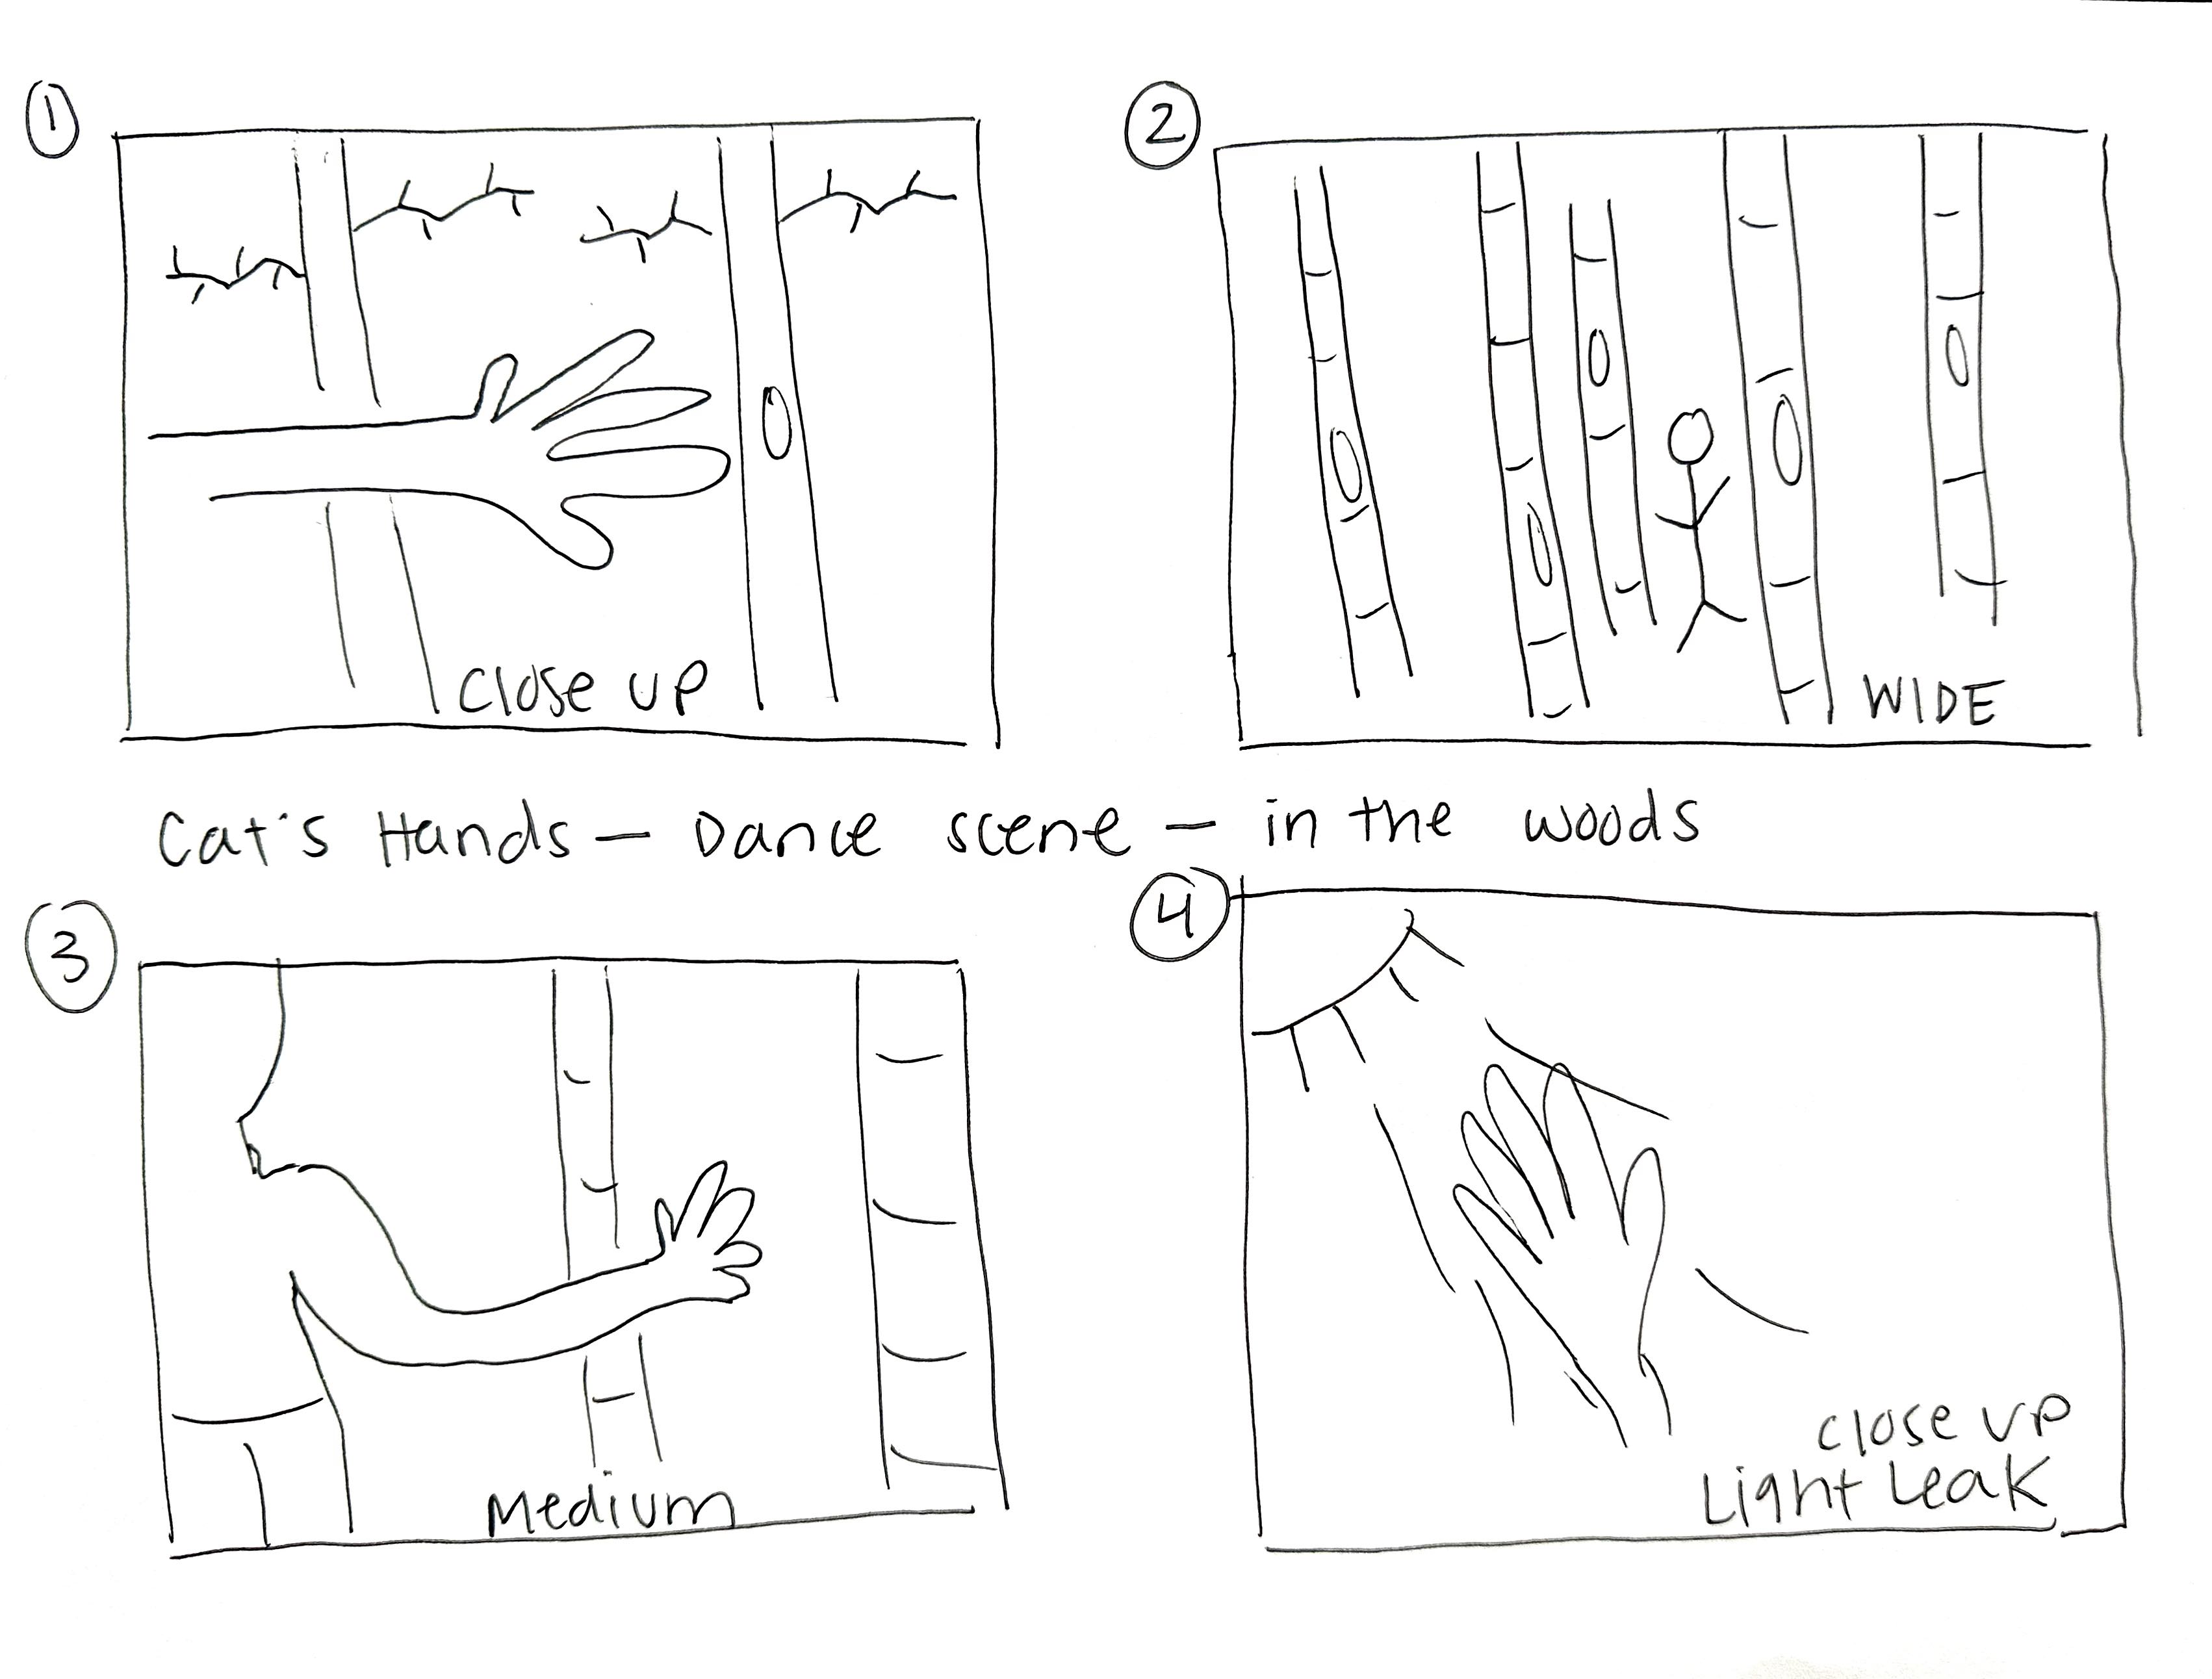 1
2
Close up
WIDE
Cat's Hands - Dance scene - in the woods
3
4
Medium
Close up
Light Leak